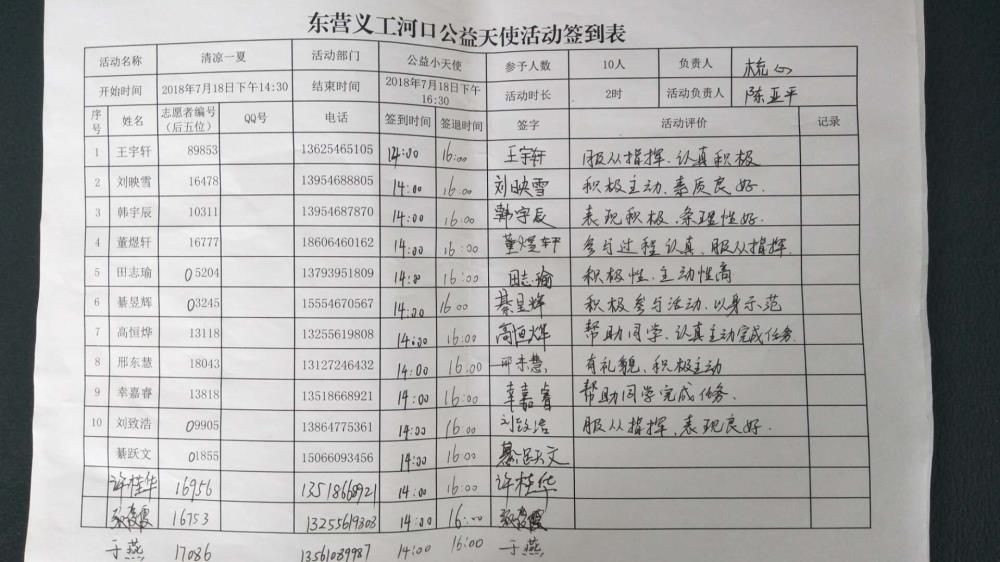 东营义工河口公益天使活动签到表
活动名称 清凉一夏 活动部门 公益小天使 参予人数 10人 负责人 梳心
开始时间 2018年7月18日下午14:30 结束时间 2018年7月18日下午16:30 活动时长 2时 活动负责人 陈亚平
序号 姓名 志愿者编号（后五位） QQ号 电话 签到时间 签退时间 签字 活动评价 记录
1 王宇轩 89853 13625465105 14:00 16:00 王宇轩 服从指挥.认真积极
2 刘映雪 16478 13954688805 14:00 16:00 刘映雪 积极主动、素质良好.
3 韩宇辰 10311 13954687870 14:00 16:00 韩宇辰 表现积极、条理性好.
4 董煜轩 16777 18606460162 14:00 16:00 董煜轩 参与过程认真、服从指挥.
5 田志瑜 05204 13793951809 14:00 16:00 田志瑜 积极性.主动性高
6 綦昱辉 03245 15554670567 14:00 16:00 綦昱辉 积极参与活动.以身示范
7 高恒烨 13118 13255619808 14:00 16:00 高恒烨 帮助同学、认真主动完成任务.
8 邢东慧 18043 13127246432 14:00 16:00 邢东慧 有礼貌、积极主动
9 幸嘉睿 13818 13518668921 14:00 16:00 幸嘉睿 帮助同学完成任务.
10 刘致浩 09905 13864775361 14:00 16:00 刘致浩 服从指挥、表现良好.
綦跃文 01855 15066093456 14:00 16:00 綦跃文
许桂华 16956 13518668921 14:00 16:00 许桂华
16753 13255619808 14:00 16:00
于燕 17086 13561089987 14:00 16:00 于燕